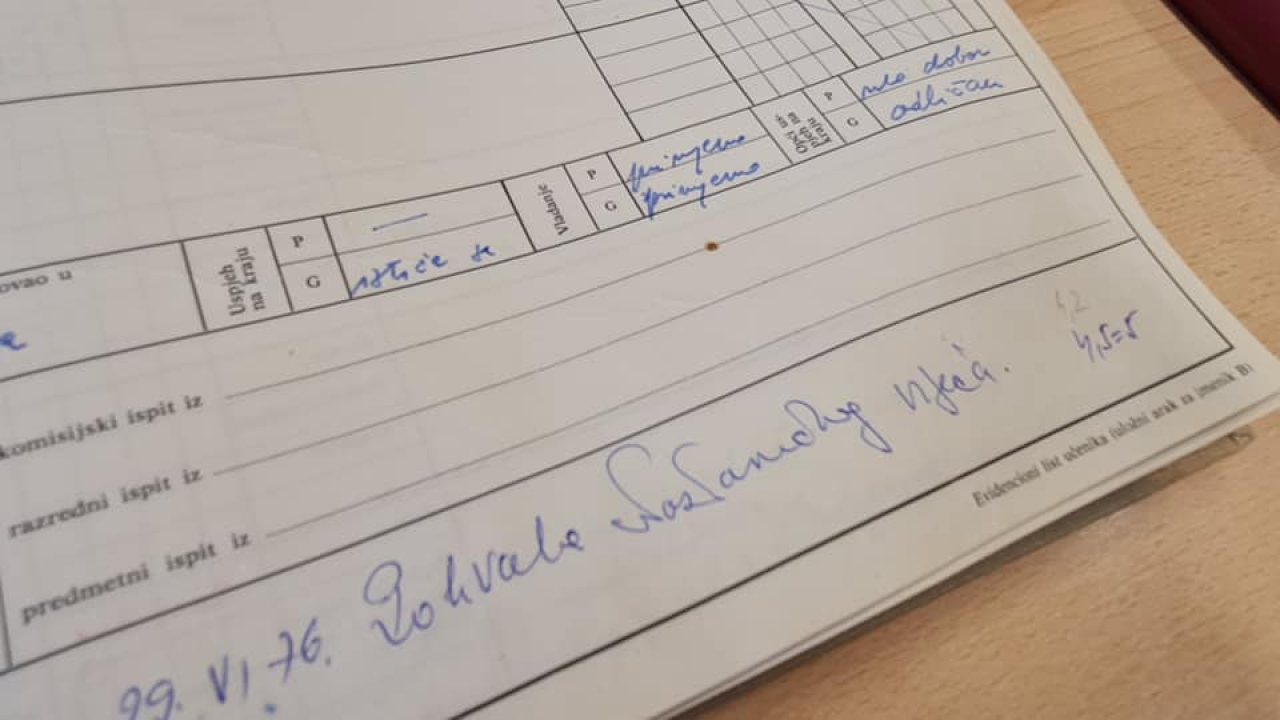 ovao u
Uspjeh na kraju
P —
G ističe se
Vladanje
P primjerno
G primjerno
Opći us-
pjeh na
kraju
P vrlo dobar
G odličan
komisijski ispit iz
razredni ispit iz
predmetni ispit iz
4,2
4,5=5
29. VI 76. Pohvala Nastavničkog vijeća.
Evidencioni list učenika (uložni arak za imenik B)